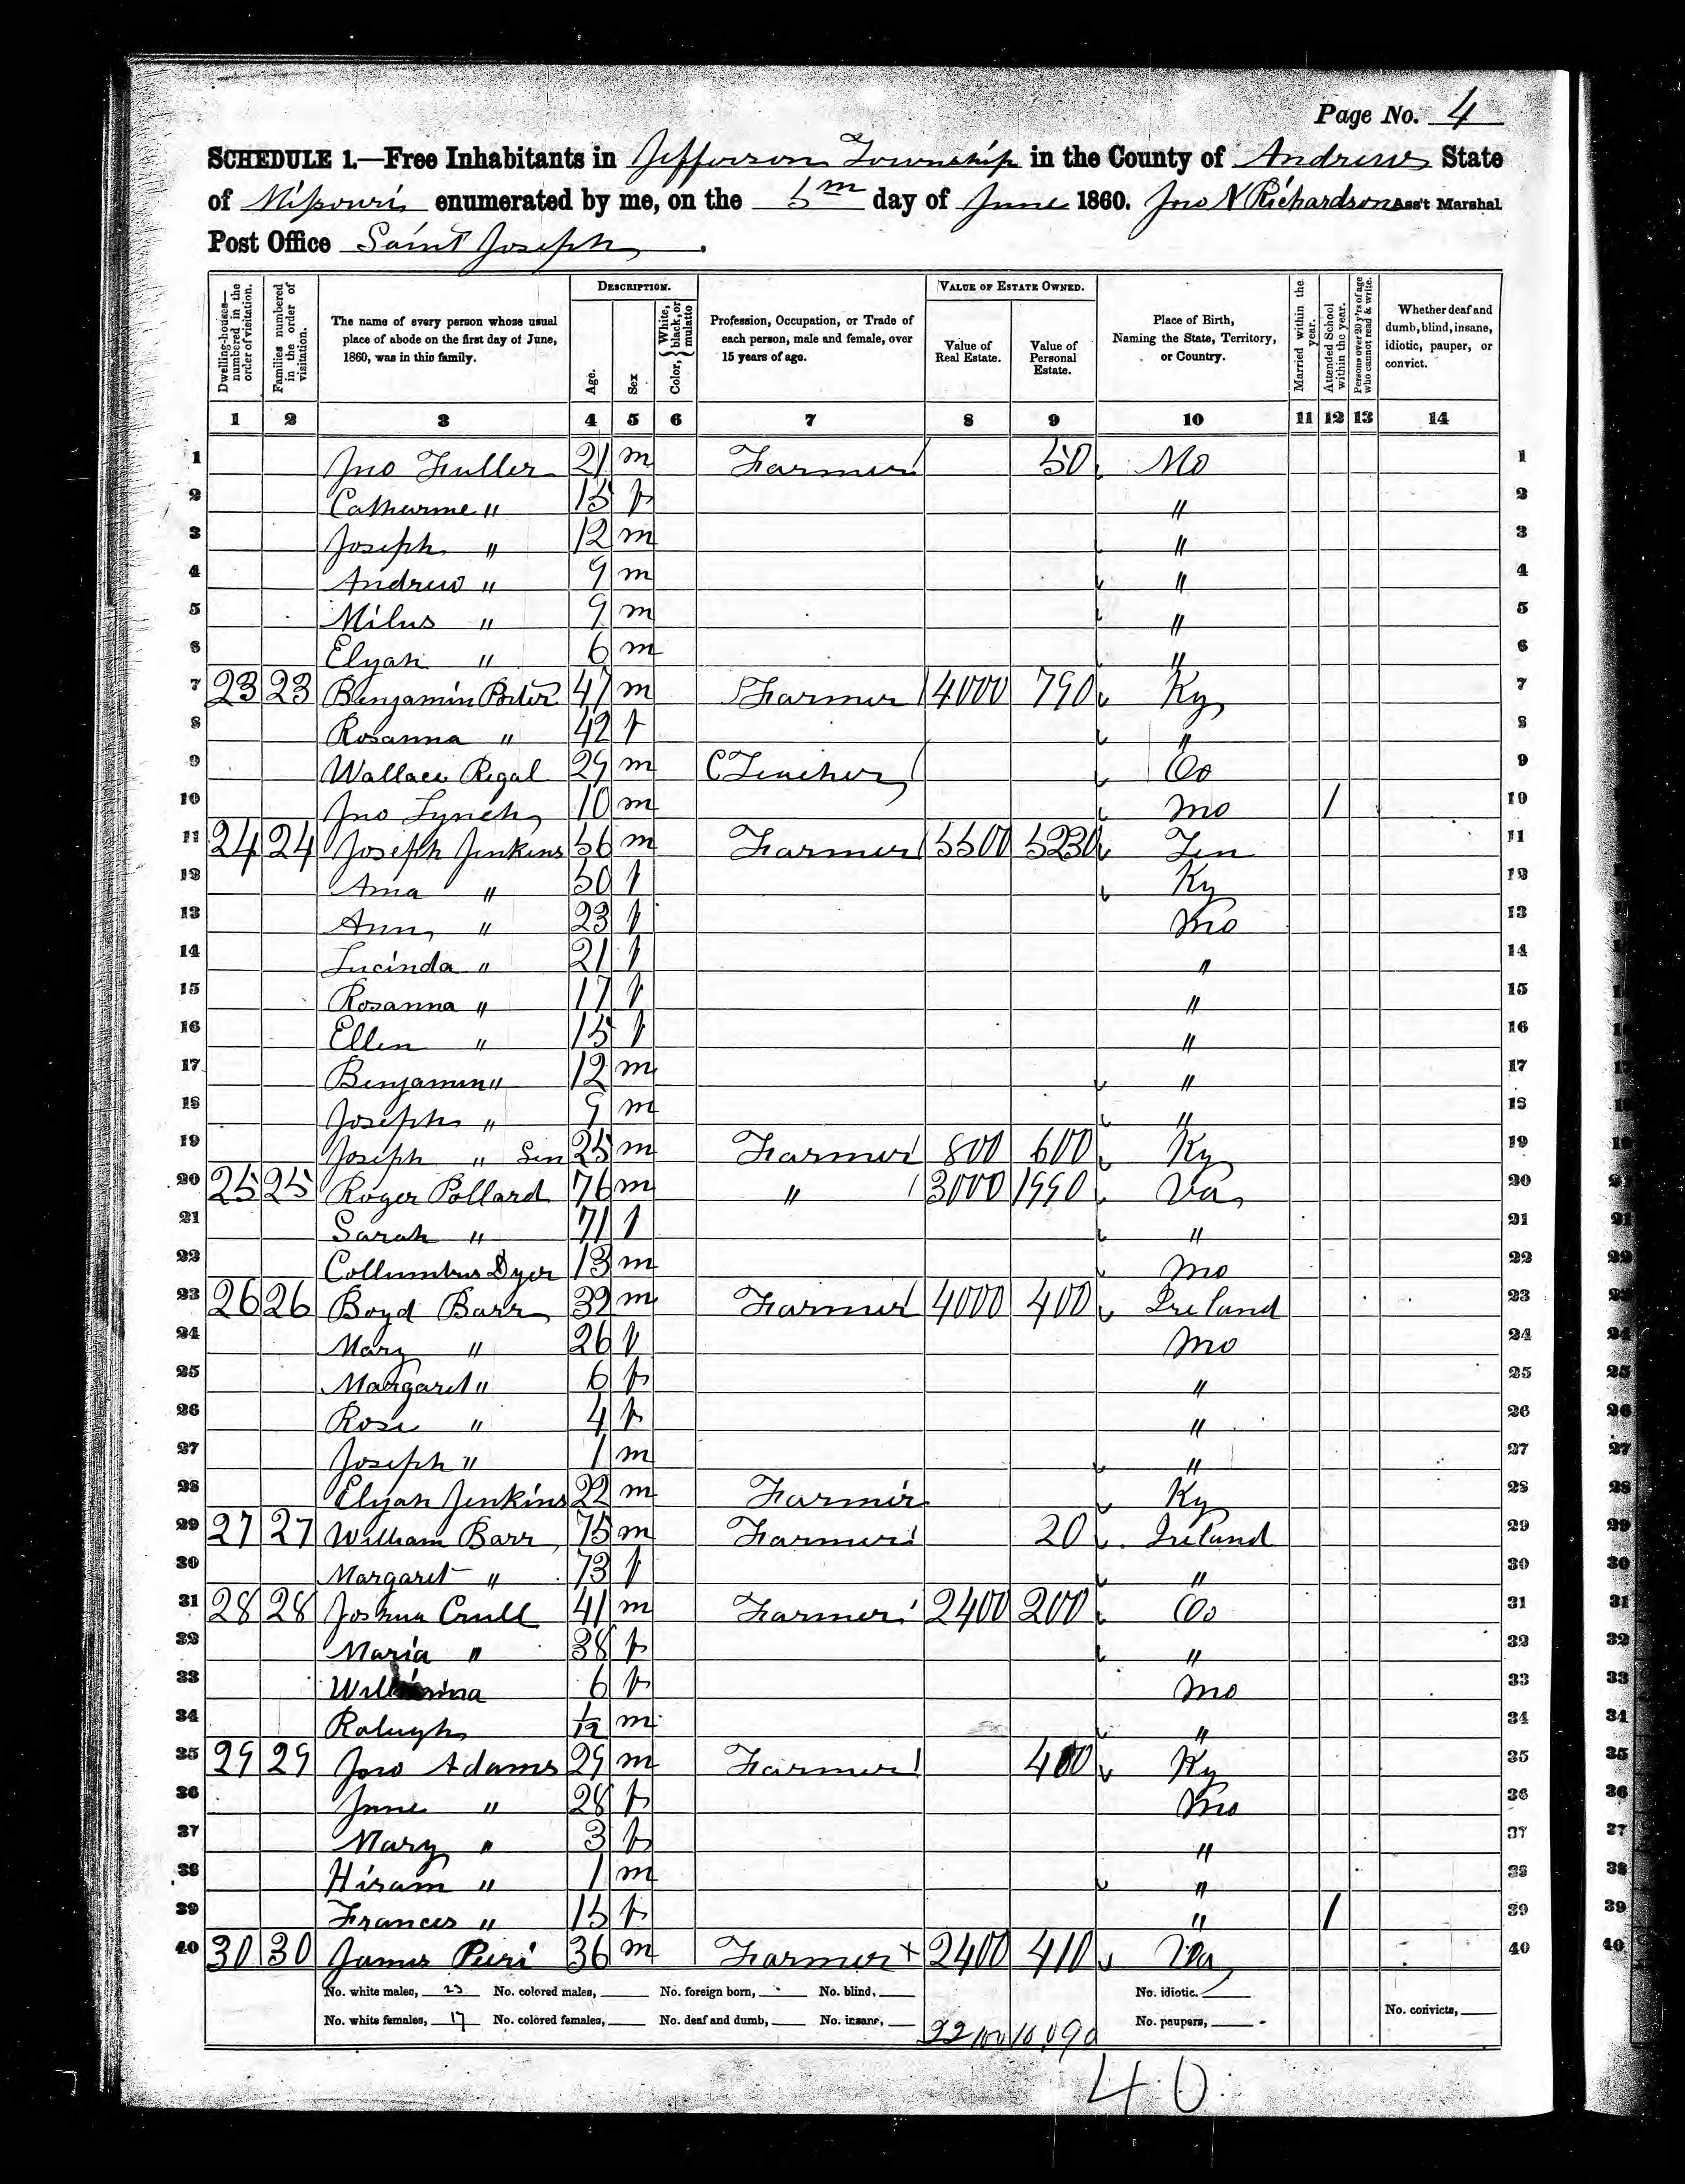 Page No. 4
SCHEDULE 1.—Free Inhabitants in Jefferson Township in the County of Andrew State
of Missouri enumerated by me, on the 5th day of June 1860. Jno N Richardson Ass't Marshal
Post Office Saint Joseph.
Dwelling-houses—numbered in the order of visitation.
Families numbered in the order of visitation.
The name of every person whose usual place of abode on the first day of June, 1860, was in this family.
DESCRIPTION.
Age.
Sex
Color, { White, black, or mulatto
Profession, Occupation, or Trade of each person, male and female, over 15 years of age.
VALUE OF ESTATE OWNED.
Value of Real Estate.
Value of Personal Estate.
Place of Birth, Naming the State, Territory, or Country.
Married within the year.
Attended School within the year.
Persons over 20 y'rs of age who cannot read & write.
Whether deaf and dumb, blind, insane, idiotic, pauper, or convict.
1 2 3 4 5 6 7 8 9 10 11 12 13 14
1 Jno Fuller 21 m Farmer 50 Mo 1
2 Catharine " 15 f " 2
3 Joseph " 12 m " 3
4 Andrew " 9 m " 4
5 Milus " 9 m " 5
6 Elyah " 6 m " 6
7 23 23 Benjamin Porter 47 m Farmer 4000 790 Ky 7
8 Rosanna " 42 f " 8
9 Wallace Regal 29 m C Teacher Oo 9
10 Jno Lynch 10 m Mo / 10
11 24 24 Joseph Jenkins 56 m Farmer 5500 5230 Ten 11
12 Ama " 50 f Ky 12
13 Ann " 23 f Mo 13
14 Lucinda " 21 f " 14
15 Rosanna " 17 f " 15
16 Ellen " 15 f " 16
17 Benjamin " 12 m " 17
18 Joseph " 9 m " 18
19 Joseph " Sen 25 m Farmer 800 600 Ky 19
20 25 25 Roger Pollard 76 m " 3000 1990 Va 20
21 Sarah " 71 f " 21
22 Collumbus Dyer 13 m Mo 22
23 26 26 Boyd Barr 32 m Farmer 4000 400 Ireland 23
24 Mary " 26 f Mo 24
25 Margaret " 6 f " 25
26 Rose " 4 f " 26
27 Joseph " 1 m " 27
28 Elyah Jenkins 22 m Farmer Ky 28
29 27 27 William Barr 75 m Farmer 20 Ireland 29
30 Margaret " 73 f " 30
31 28 28 Joshua Crull 41 m Farmer 2400 200 Oo 31
32 Maria " 38 f " 32
33 6 f Mo 33
34 Raleugh 1/12 m " 34
35 29 29 Jno Adams 29 m Farmer 400 Ky 35
36 Jane " 28 f Mo 36
37 Mary " 3 f " 37
38 Hiram " 1 m " 38
39 Frances " 15 f " / 39
40 30 30 James 36 m Farmer + 2400 410 Va 40
No. white males, 23 No. colored males, No. foreign born, No. blind, No. idiotic.
No. white females, 17 No. colored females, No. deaf and dumb, No. insane, 22100 10,090 No. paupers, No. convicts,
40